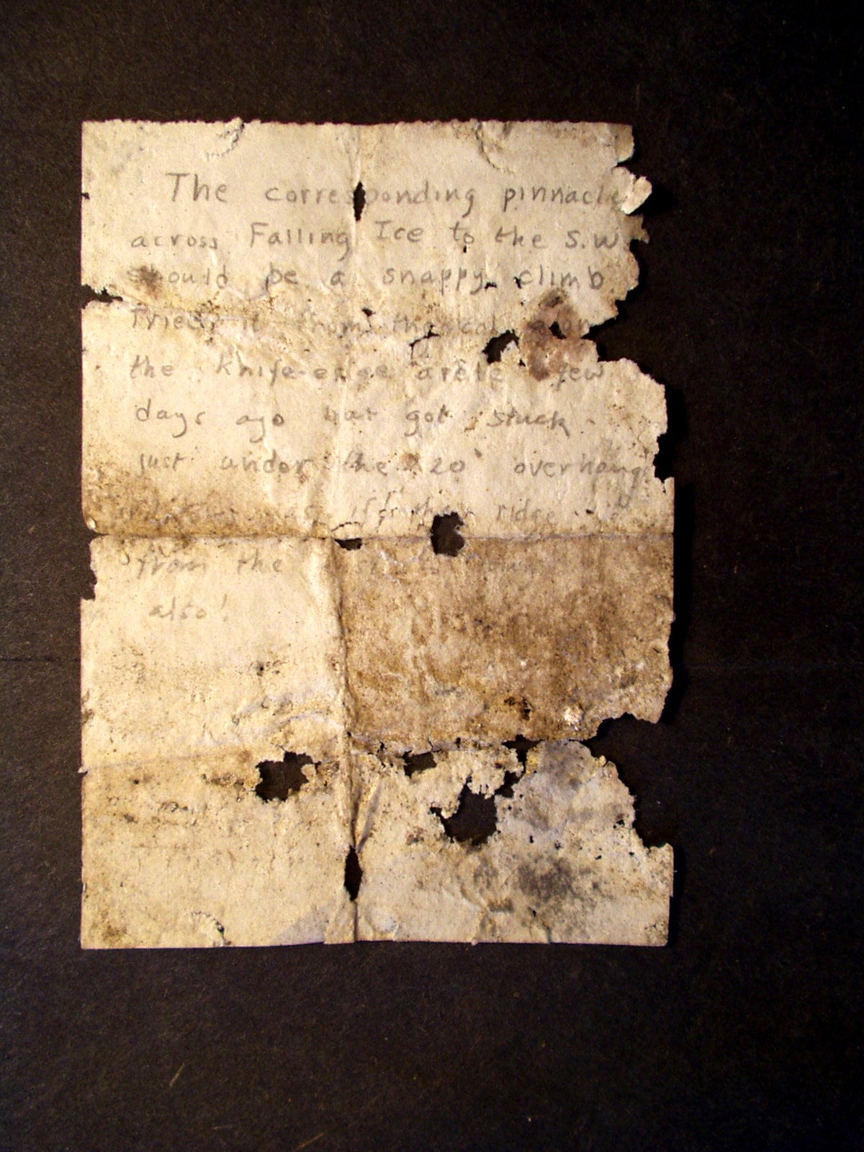 The corresponding pinnacle
across Falling Ice to the S.W.
should be a snappy climb
Tried it from the col along
the knife-edge arete few
days ago but got stuck
just under the 20' overhang
ridge
from the
also!